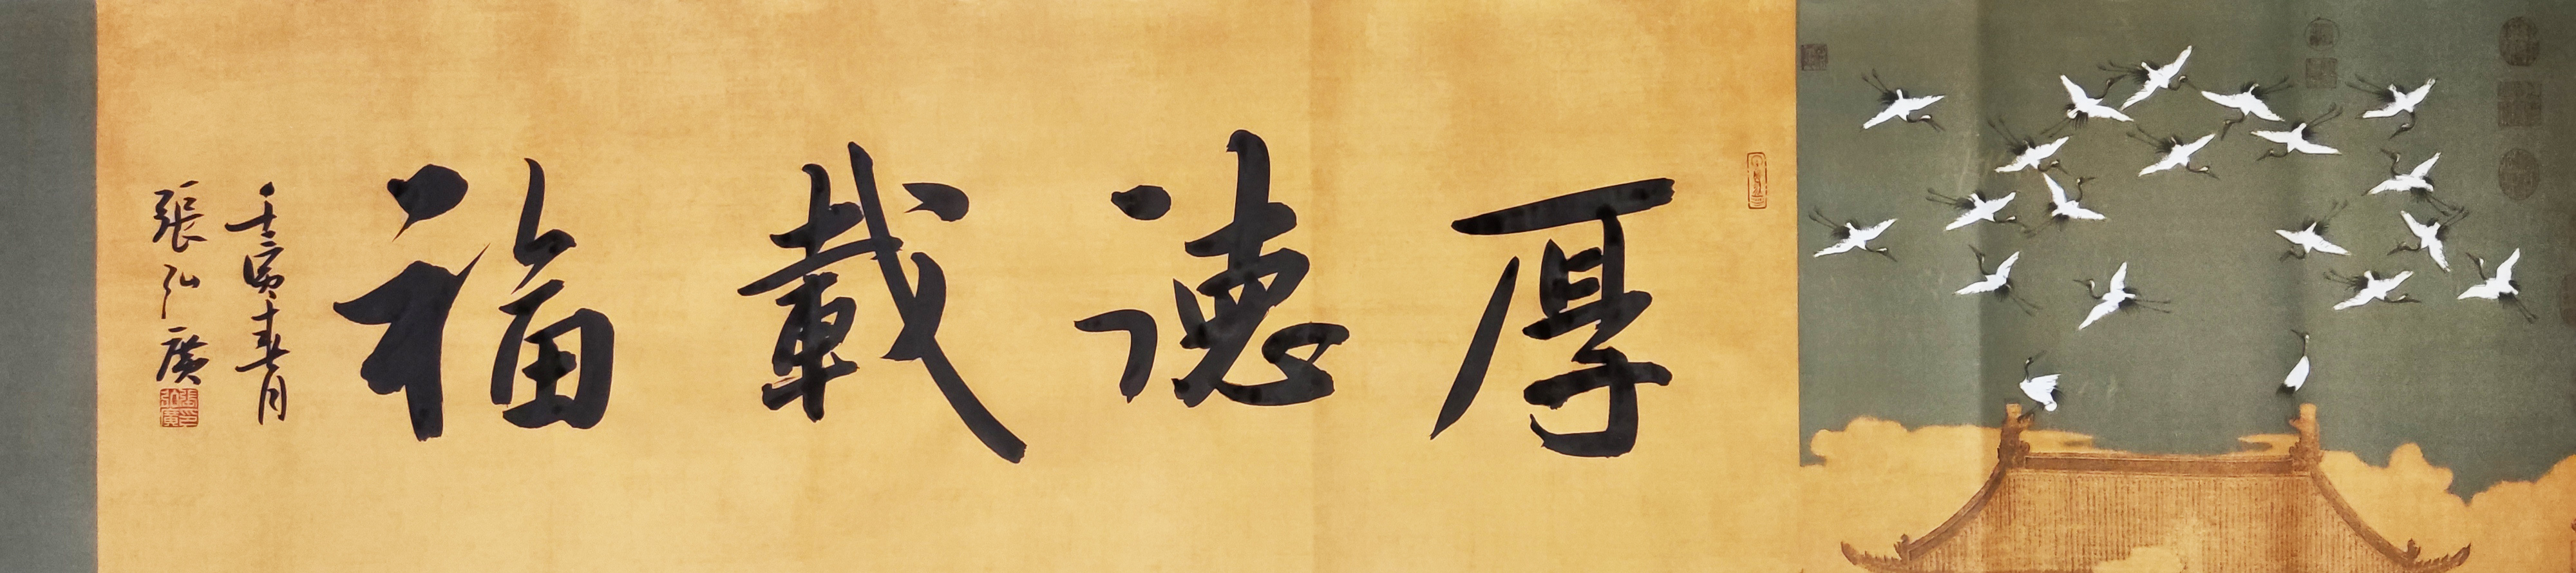 厚德載福
壬寅春月
張弘廣